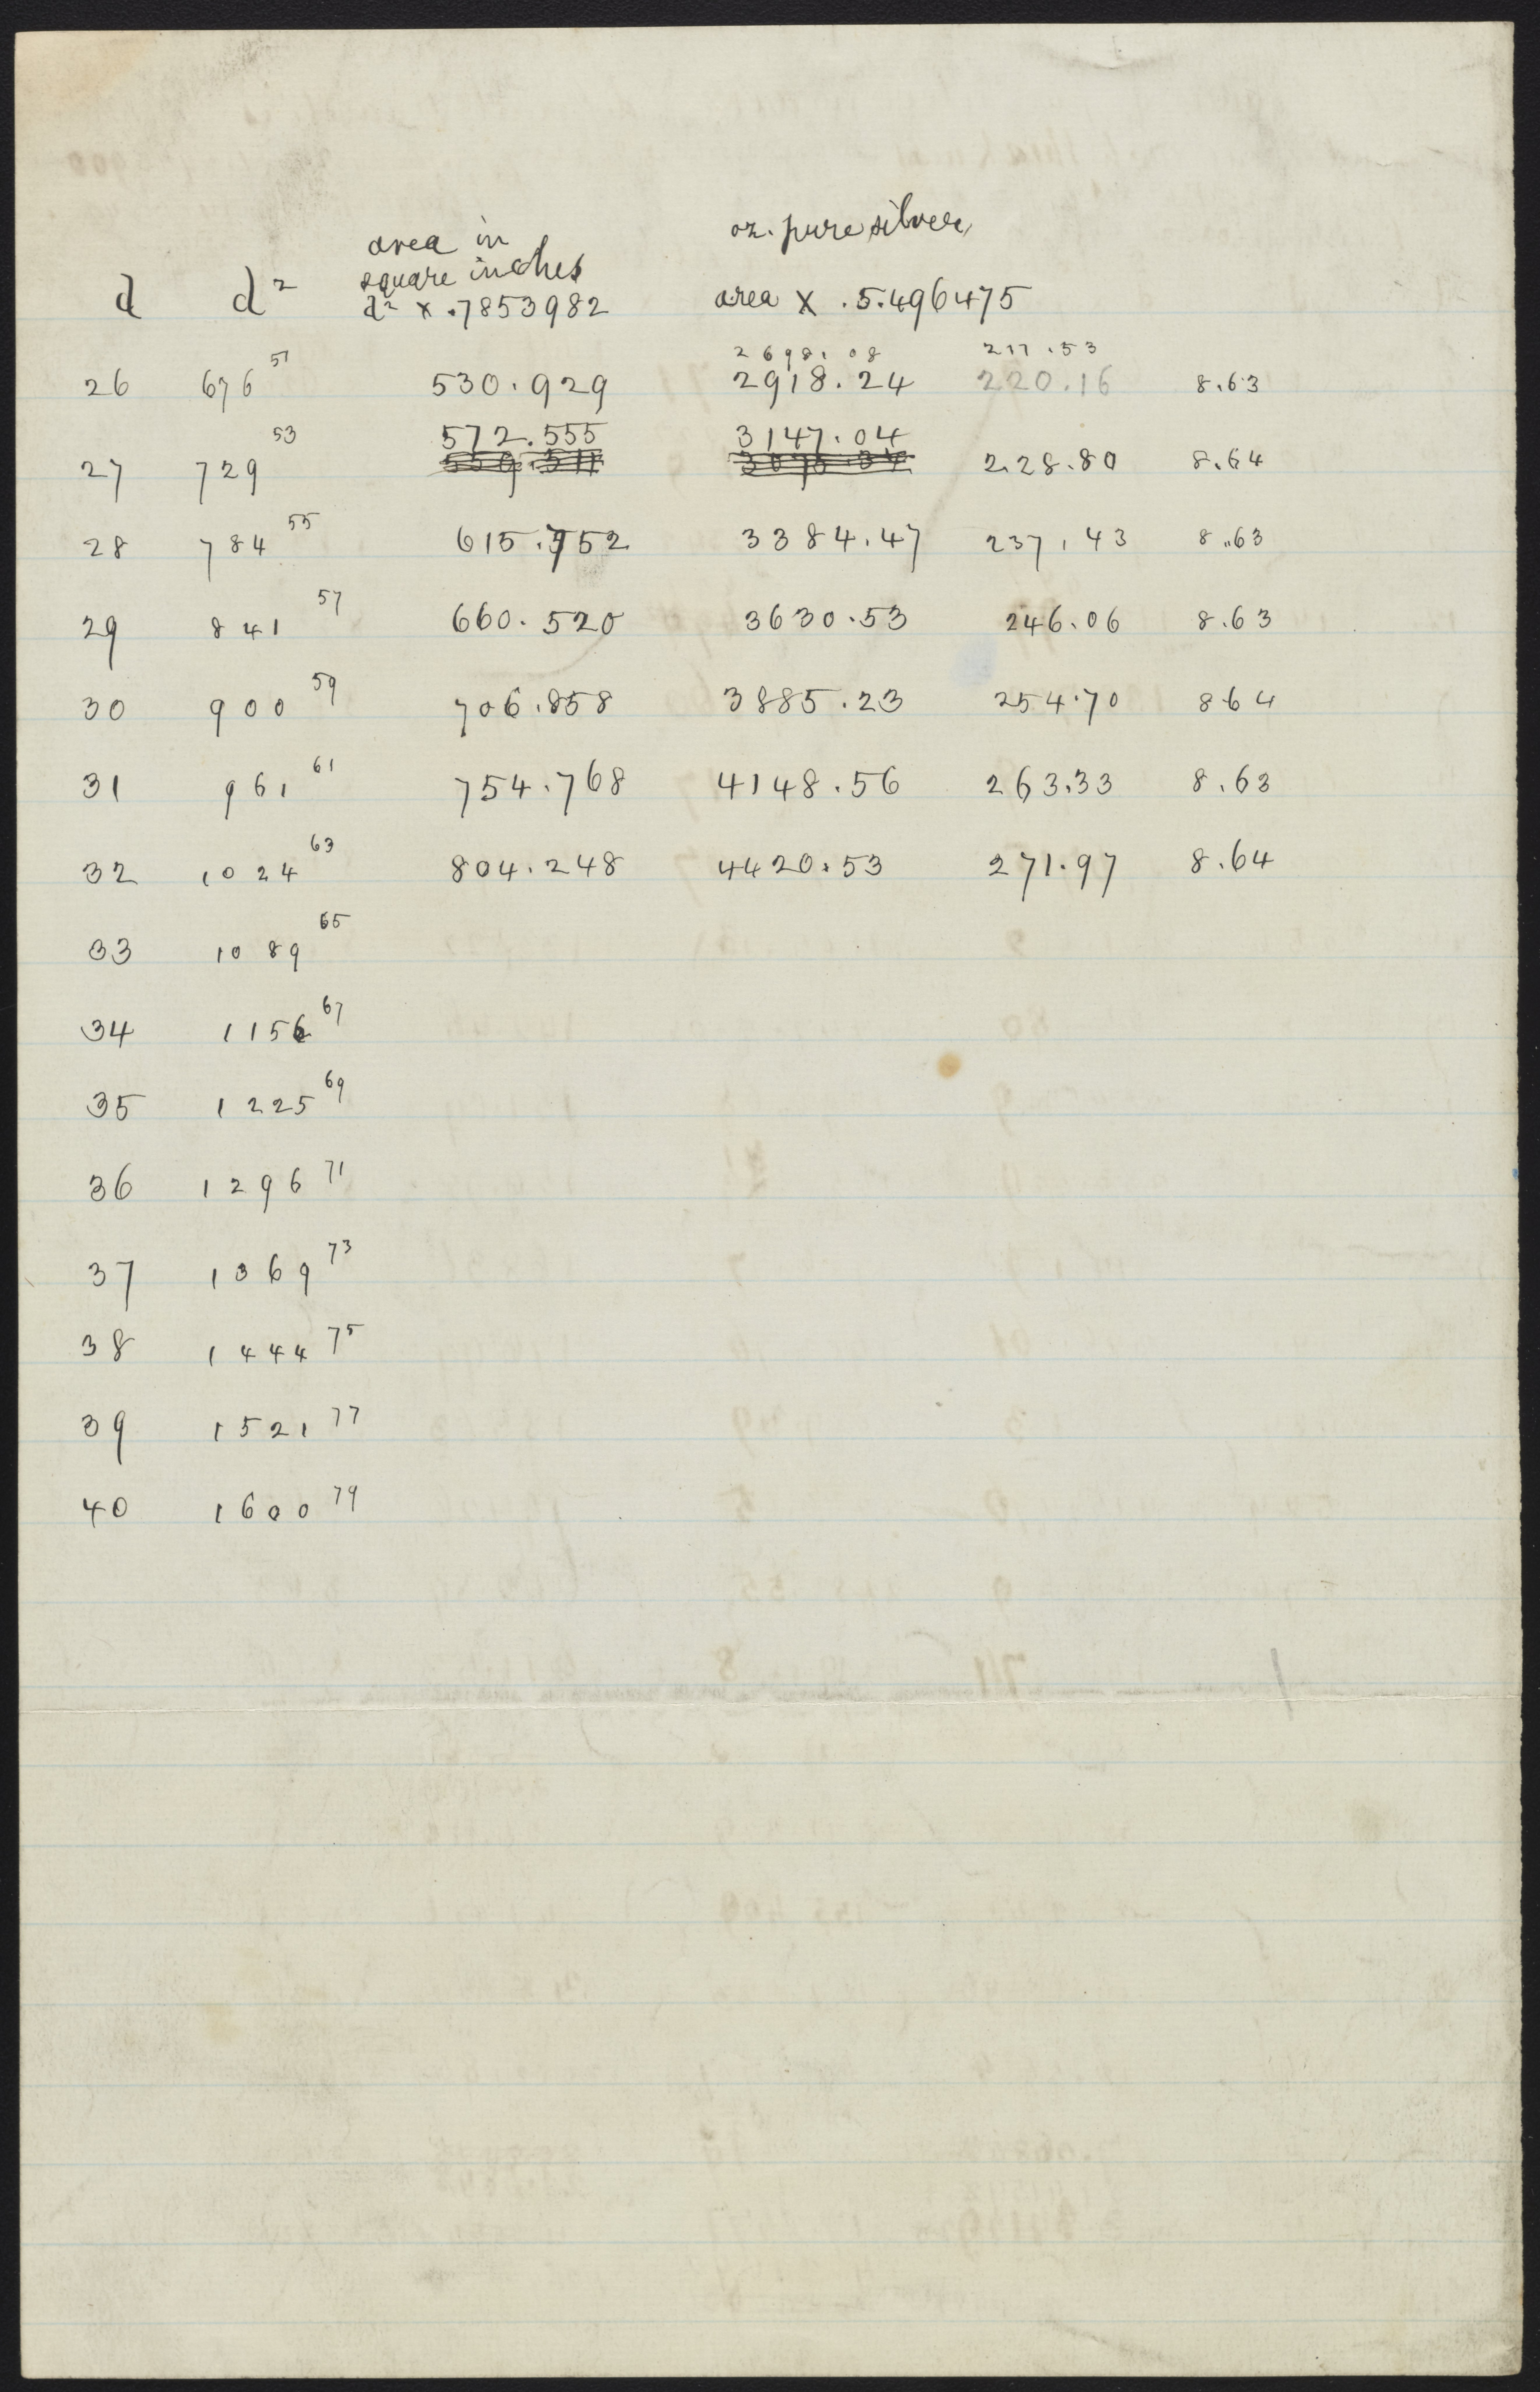 oz. pure silver
area in
square inches
d d² d² x .7853982 area x .5.496475
2698.08 211.53
26 676 51 530.929 2918.24 220.16 8.63
53 572.555 3147.04
27 729 228.80 8.64
28 784 55 615.752 3384.47 237.43 8.63
29 841 57 660.520 3630.53 246.06 8.63
30 900 59 706.858 3885.23 254.70 8.64
31 961 61 754.768 4148.56 263.33 8.63
32 1024 63 804.248 4420.53 271.97 8.64
33 1089 65
34 1156 67
35 1225 69
36 1296 71
37 1369 73
38 1444 75
39 1521 77
40 1600 79